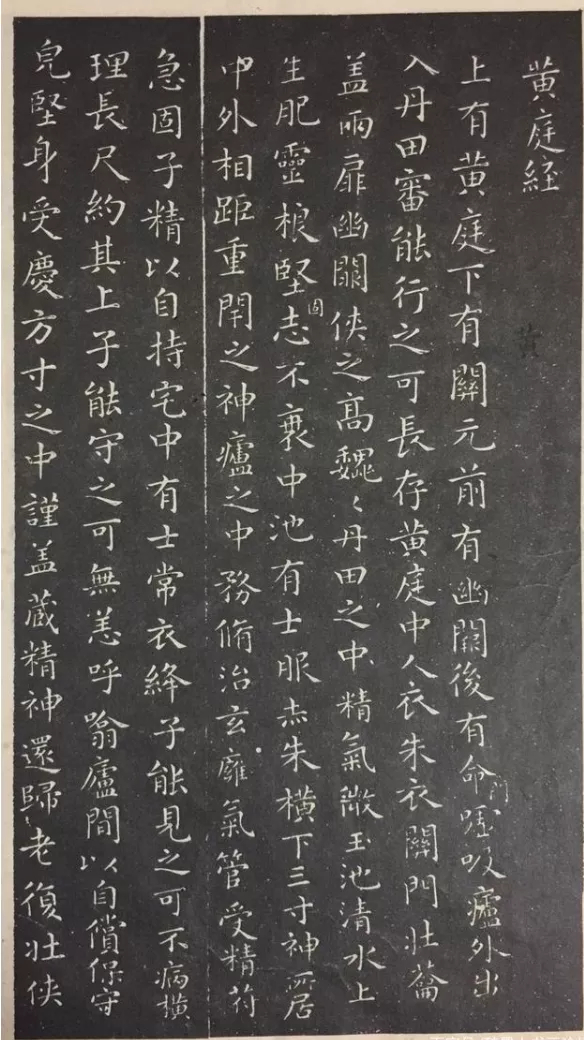 黃庭經
上有黃庭下有關元前有幽闕後有命門噓吸廬外出
入丹田審能行之可長存黃庭中人衣朱衣關門壯蘥
蓋兩扉幽闕俠之高魏〻丹田之中精氣微玉池清水上
生肥靈根堅固志不衰中池有士服赤朱橫下三寸神所居
中外相距重閇之神廬之中務脩治玄廱氣管受精苻
急固子精以自持宅中有士常衣絳子能見之可不病橫
理長尺約其上子能守之可無恙呼噏廬間以自償保守
皃堅身受慶方寸之中謹蓋藏精神還歸老復壯俠